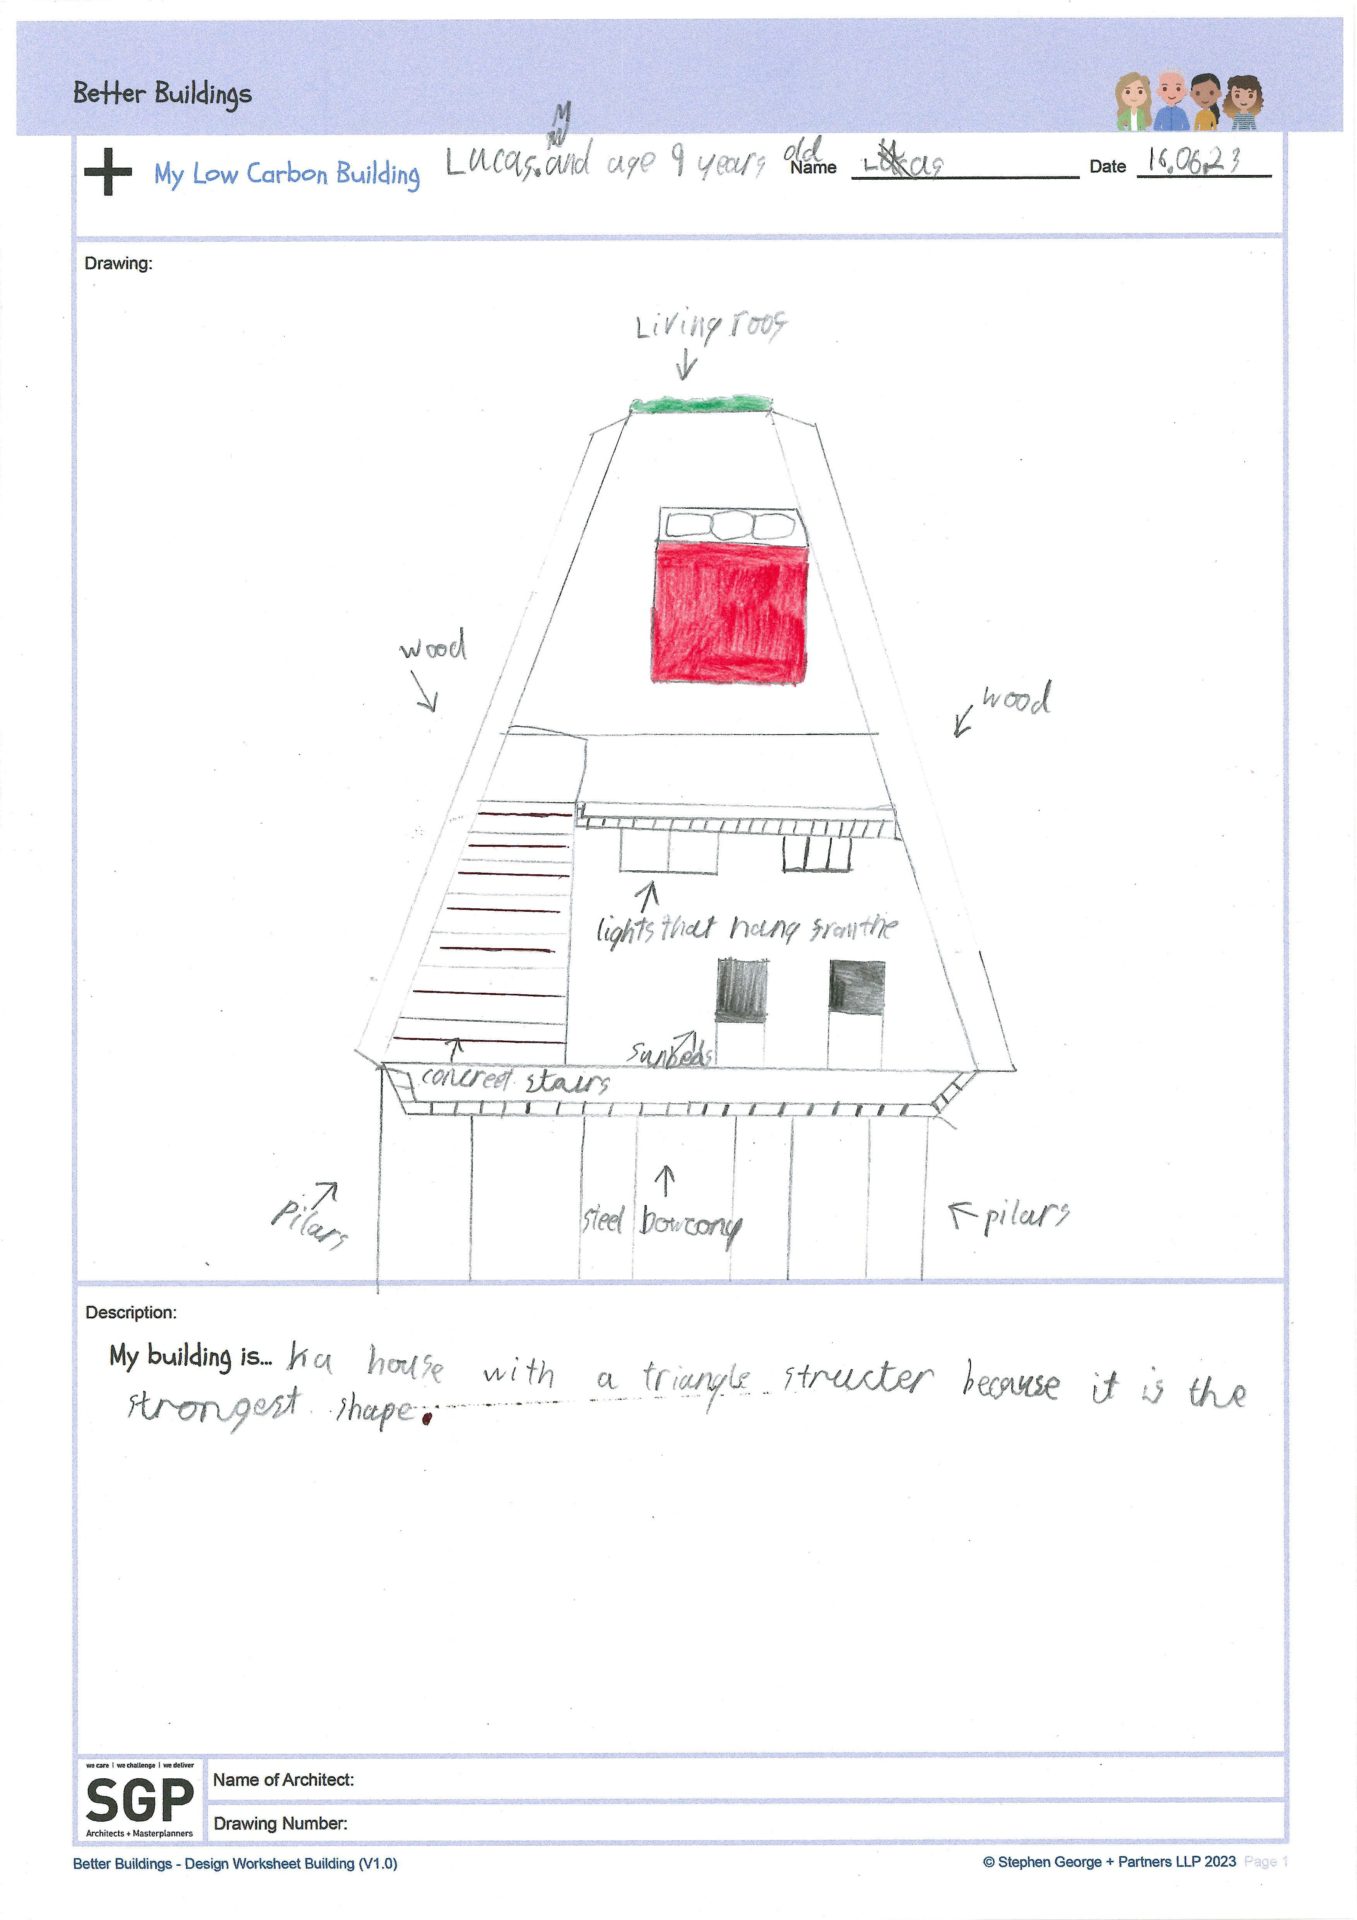 Better Buildings
My Low Carbon Building
Lucas. and age 9 years old
Name Lucas
Date 16.06.23
Drawing:
Living roos
wood
wood
lights that hang from the
sunbeds
concreet stairs
Pilars
steel bowcony
pilars
Description:
My building is... a house with a triangle structer because it is the
strongest shape.
we care | we challenge | we deliver
SGP
Architects + Masterplanners
Name of Architect:
Drawing Number:
Better Buildings - Design Worksheet Building (V1.0)
© Stephen George + Partners LLP 2023 Page 1